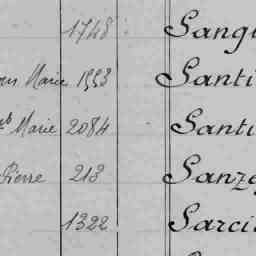 1748 Sang
Marie 1553 Santi
Marie 2084 Santi
Pierre 213 Sanz
1322 Sarci